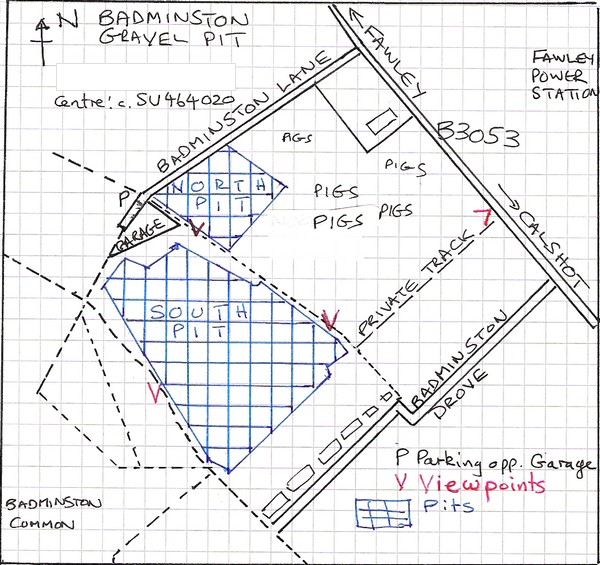 N
BADMINSTON
GRAVEL PIT
Centre: c. SU464020
BADMINSTON LANE
FAWLEY
FAWLEY
POWER
STATION
B3053
PIGS
PIGS
PIGS
PIGS
PIGS
P
GARAGE
NORTH
PIT
V
V
V
V
CALSHOT
PRIVATE TRACK
SOUTH
PIT
BADMINSTON
DROVE
BADMINSTON
COMMON
P Parking opp. Garage
V Viewpoints
Pits